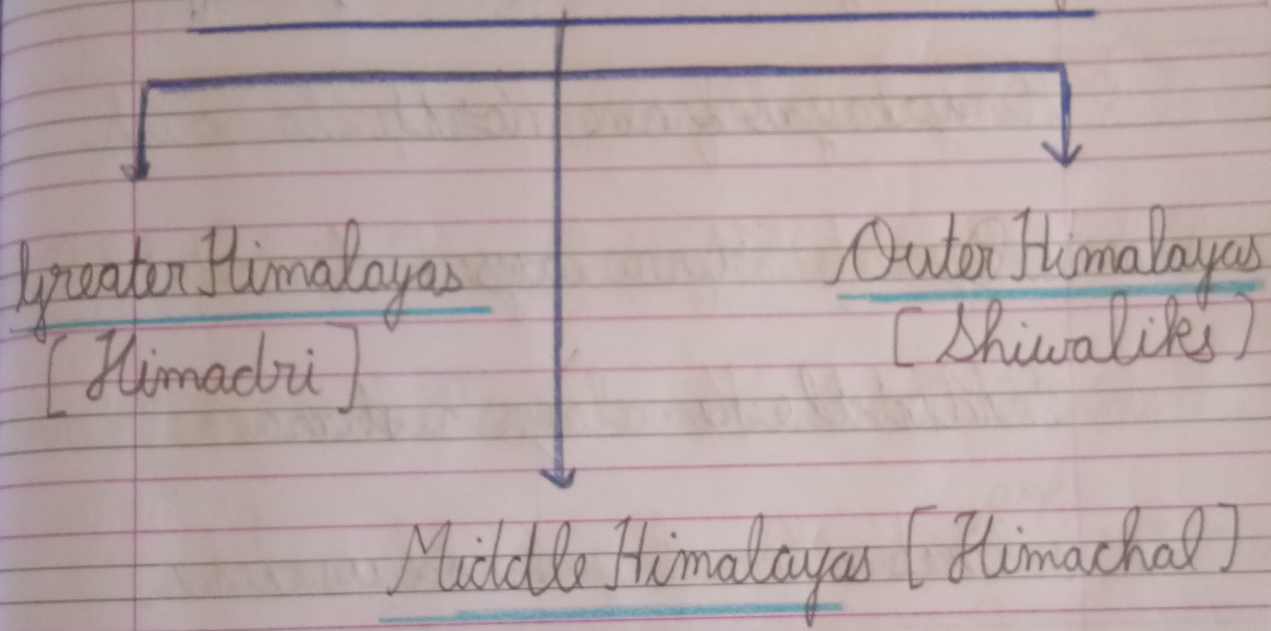 Greater Himalayas
[Himadri]
Outer Himalayas
[Shiwaliks]
Middle Himalayas [Himachal]